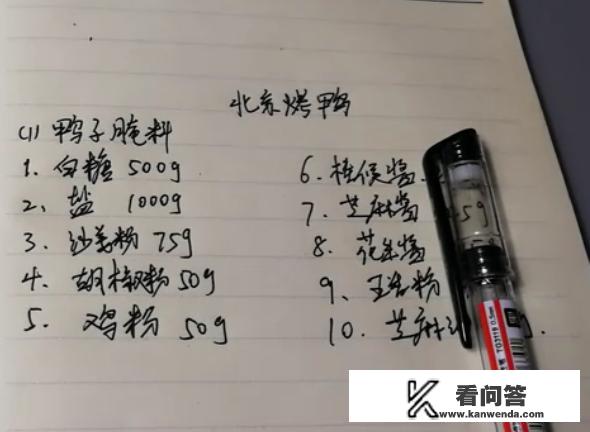 北京烤鸭
(1) 鸭子腌料
1. 白糖 500g
2、盐 1000g
3. 沙姜粉 75g
4. 胡椒粉 50g
5. 鸡粉 50g
6. 柱候酱
7. 芝麻酱 5g
8. 花生酱
9、五香粉
10. 芝麻
TG31
0.5mm
看问答
www.kanwenda.com